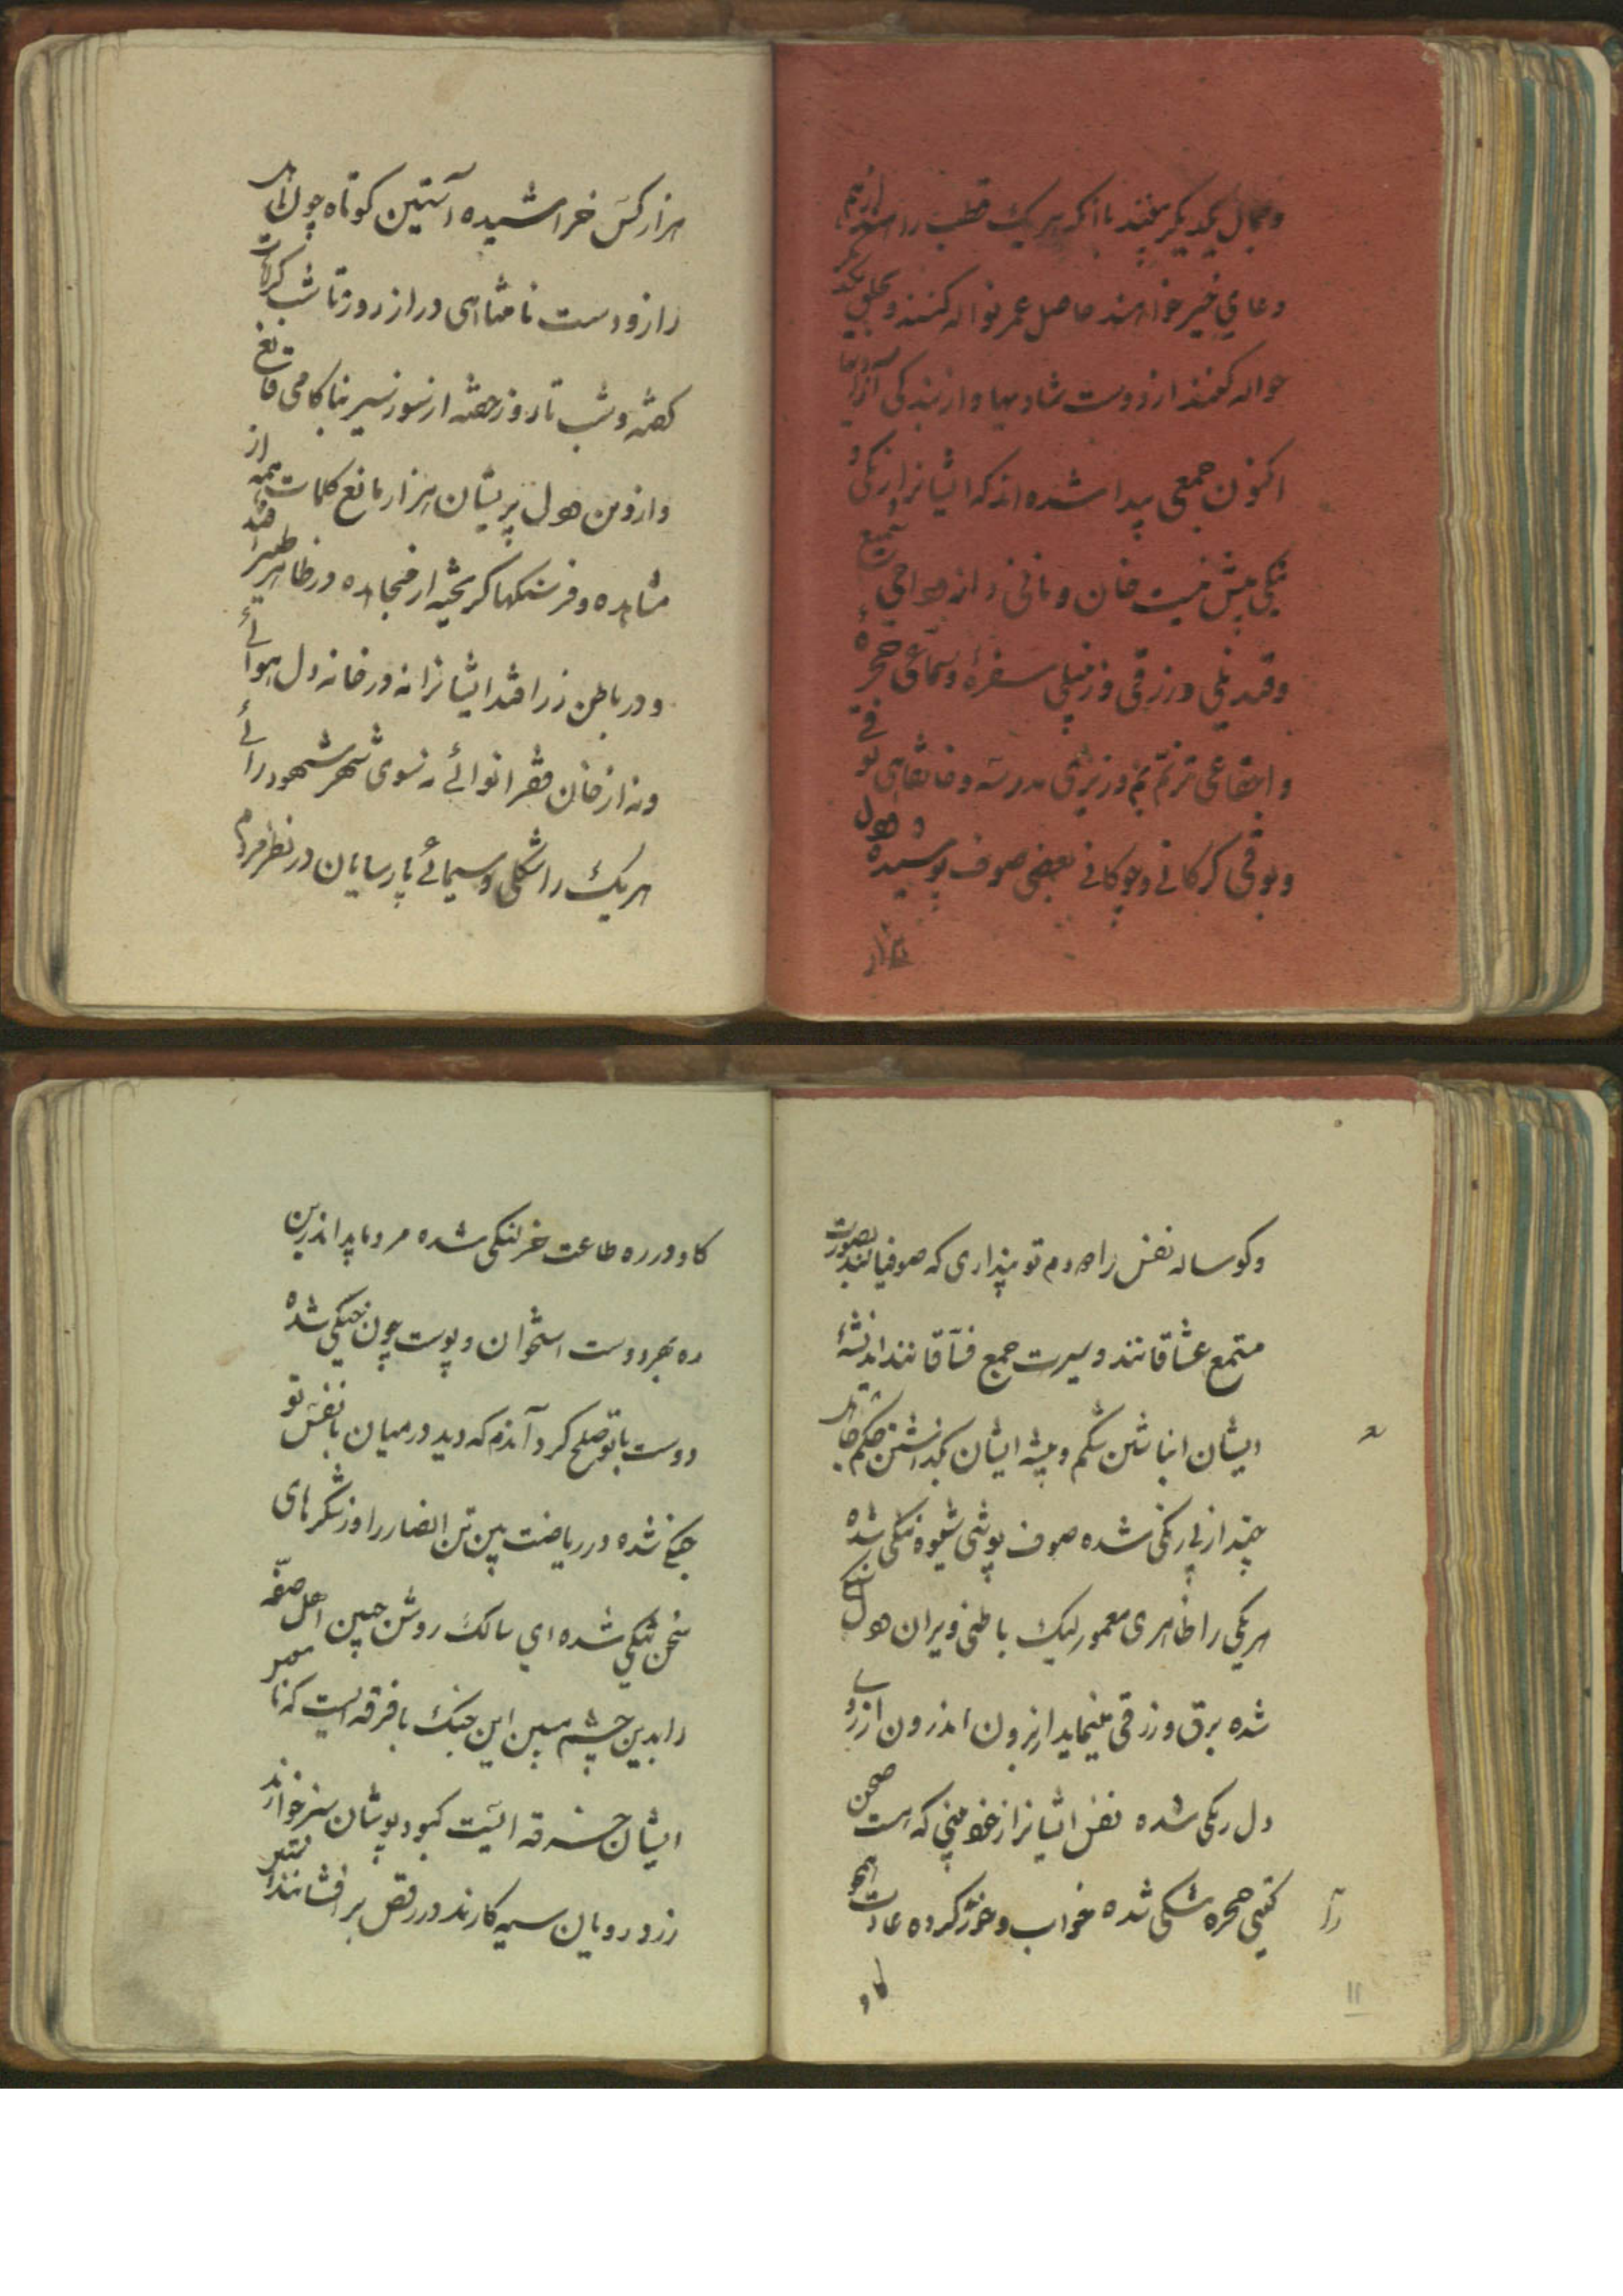 و بجمال یکدیگر بخندند با آنکه هر یک قطب راسند از هم
دعای خیر خواهند حاصل عمر نواله کنند و بحلق یکدیگر
حواله کنند از دوست شادیها و از بندگی
اکنون جمعی پیدا شده اند که ایشانرا از نیکی و
نیکی پیش نیست خان و نانی دانه و دامی و شمع
و قندیلی و رزقی و زنبیلی سفرهٔ و سماعی حجرهٔ
و اجتماعی ترنم بم و زیری مدرسه و خانقاهی بوقی
و بوقی کرکانی و چوکانی بعضی صوف پوشیده و دل
هزار کس خراشیده آستین کوتاه چون
راز و دست نامتناهی دراز روز تا شب
کشته و شب تا روز خفته از سوز سیر بناکامی قانع
و از و من دل پریشان هزار مانع کلمات همه از
مشاهده و فرسنکها کریخته از مجاهده در ظاهر طیرا
و در باطن زراقند ایشانرا نه در خانه دل هوائے
و نه از خان فقرا نوائے نه سوی شهر شهود رائے
هر یک را شکلی و سیمائے پارسایان در نظر مردم
و کوساله نفس را دم تو پنداری که صوفیانند بصورت
متمع عشاقانند و سیرت جمع فساقانند اندیشهٔ
ایشان انباشتن شکم و پیشه ایشان بگذاشتن حکم
چند از بی رنکی شده صوف پوشی شیوه ننکی شده
هریکی را ظاهری معمور لیک باطنی ویران دل
شده برق و زرقی مینماید از برون اندرون از
دل رنکی شده نفس ایشانرا از خود منی که هست صحن
کیتی حجره تنکی شده خواب و خور کرده عادت
کاو
۱۱
کاو در ره طاعت خر لنکی شده مرد باید اندرین
ره بهر دوست استخوان و پوست چون چنکی شده
دوست با تو صلح کرد آندم که دید در میان با نفس تو
جنکی شده در ریاضت بین تن انصار را وز شکرهای
سخن تنکی شده ای سالک روش چنین اهل صفه
را بدین چشم مبین این جنک با فرقه ایست که نام
ایشان خرقه ایست کبود پوشان سبز خوانند
زرد رویان سیه کارند در رقص بر افشانند